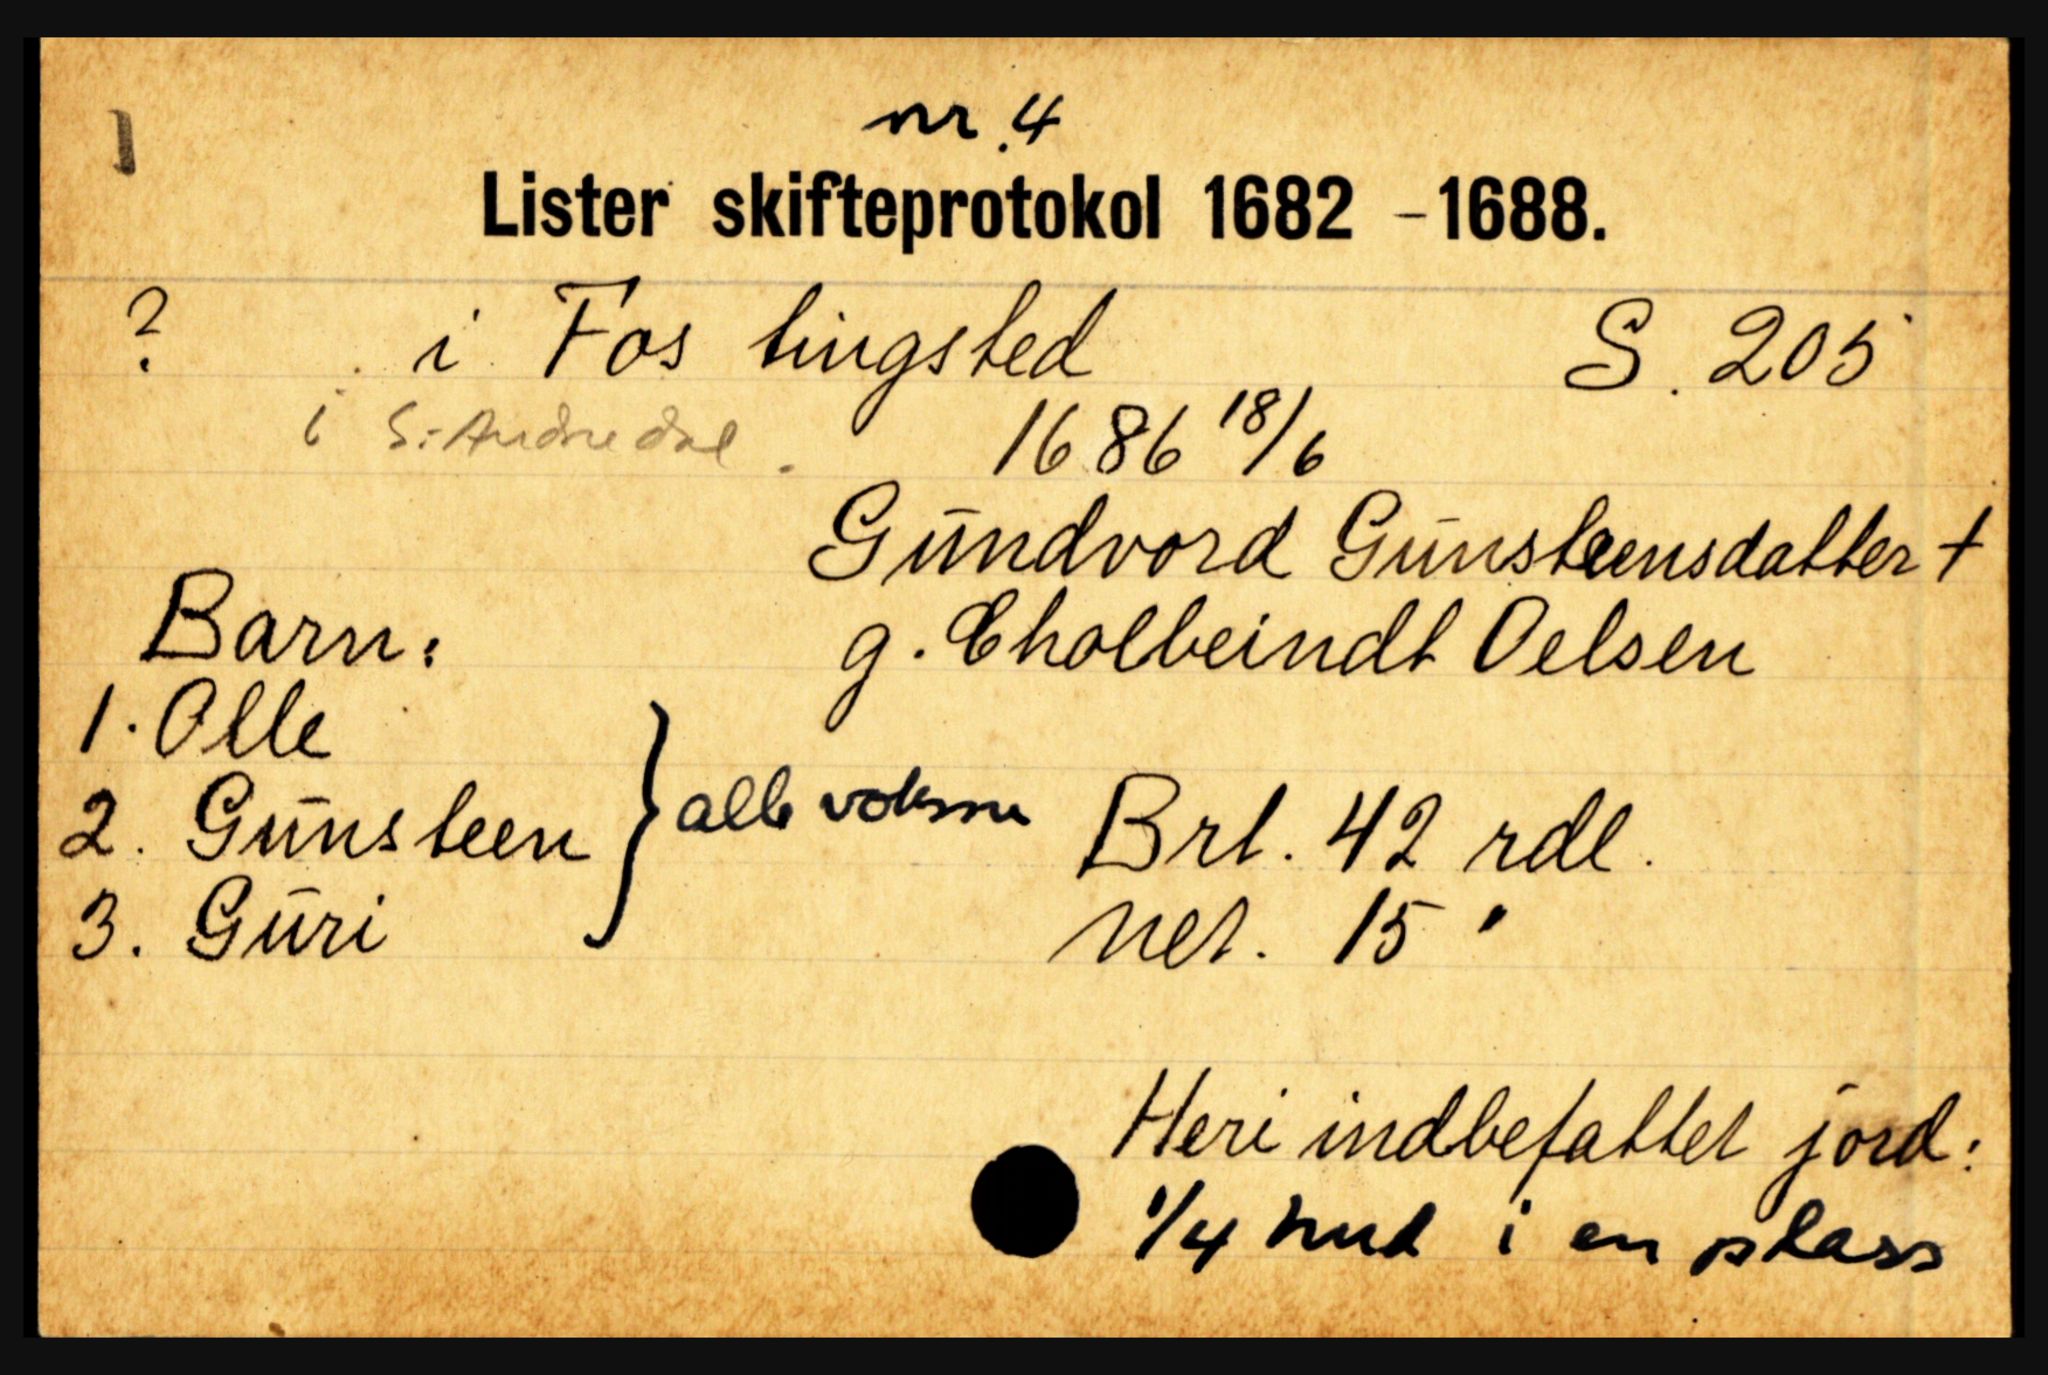 1
nr. 4
Lister skifteprotokol 1682 - 1688.
? i Fos tingsted S. 205
i S: Andredal. 1686 18/6
Gūndvord Gūnsteensdatter +
Barn: g. Eholbeindt Oelsen
1. Olle
2. Gūnsteen } alle voksne Brt. 42 rdl.
3. Gūri Net. 15 "
Heri indbefattet jord:
1/4 hud i en plass